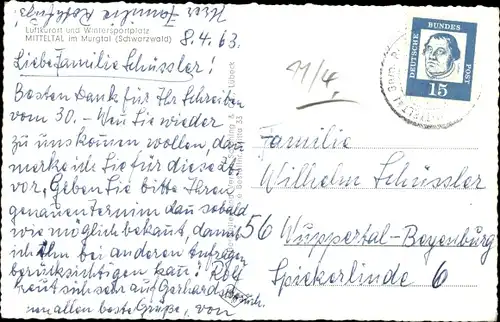 Ihrer Familie
Luftkurort und Wintersportplatz
MITTELTAL im Murgtal (Schwarzwald)
8.4.63.
Liebe Familie Schüssler!
Besten Dank für Ihr Schreiben
vom 30. - Wen Sie wieder
zu uns komen wollen, dan
merke ich Sie für diese Zeit
vor, Geben Sie bitte Ihren
genauen Termin dan sobald
wie möglich bekant damit
ich Ihn bei anderen Anfragen
berücksichtigen kan. Rolf
freut sich sehr auf Gerhards Besuch.
Ihnen allen beste Grüße, von
11/4
DEUTSCHE BUNDESPOST
15
Familie
Wilhelm Schüssler
56 Wuppertal-Beyenburg
Spiekerlinde 6